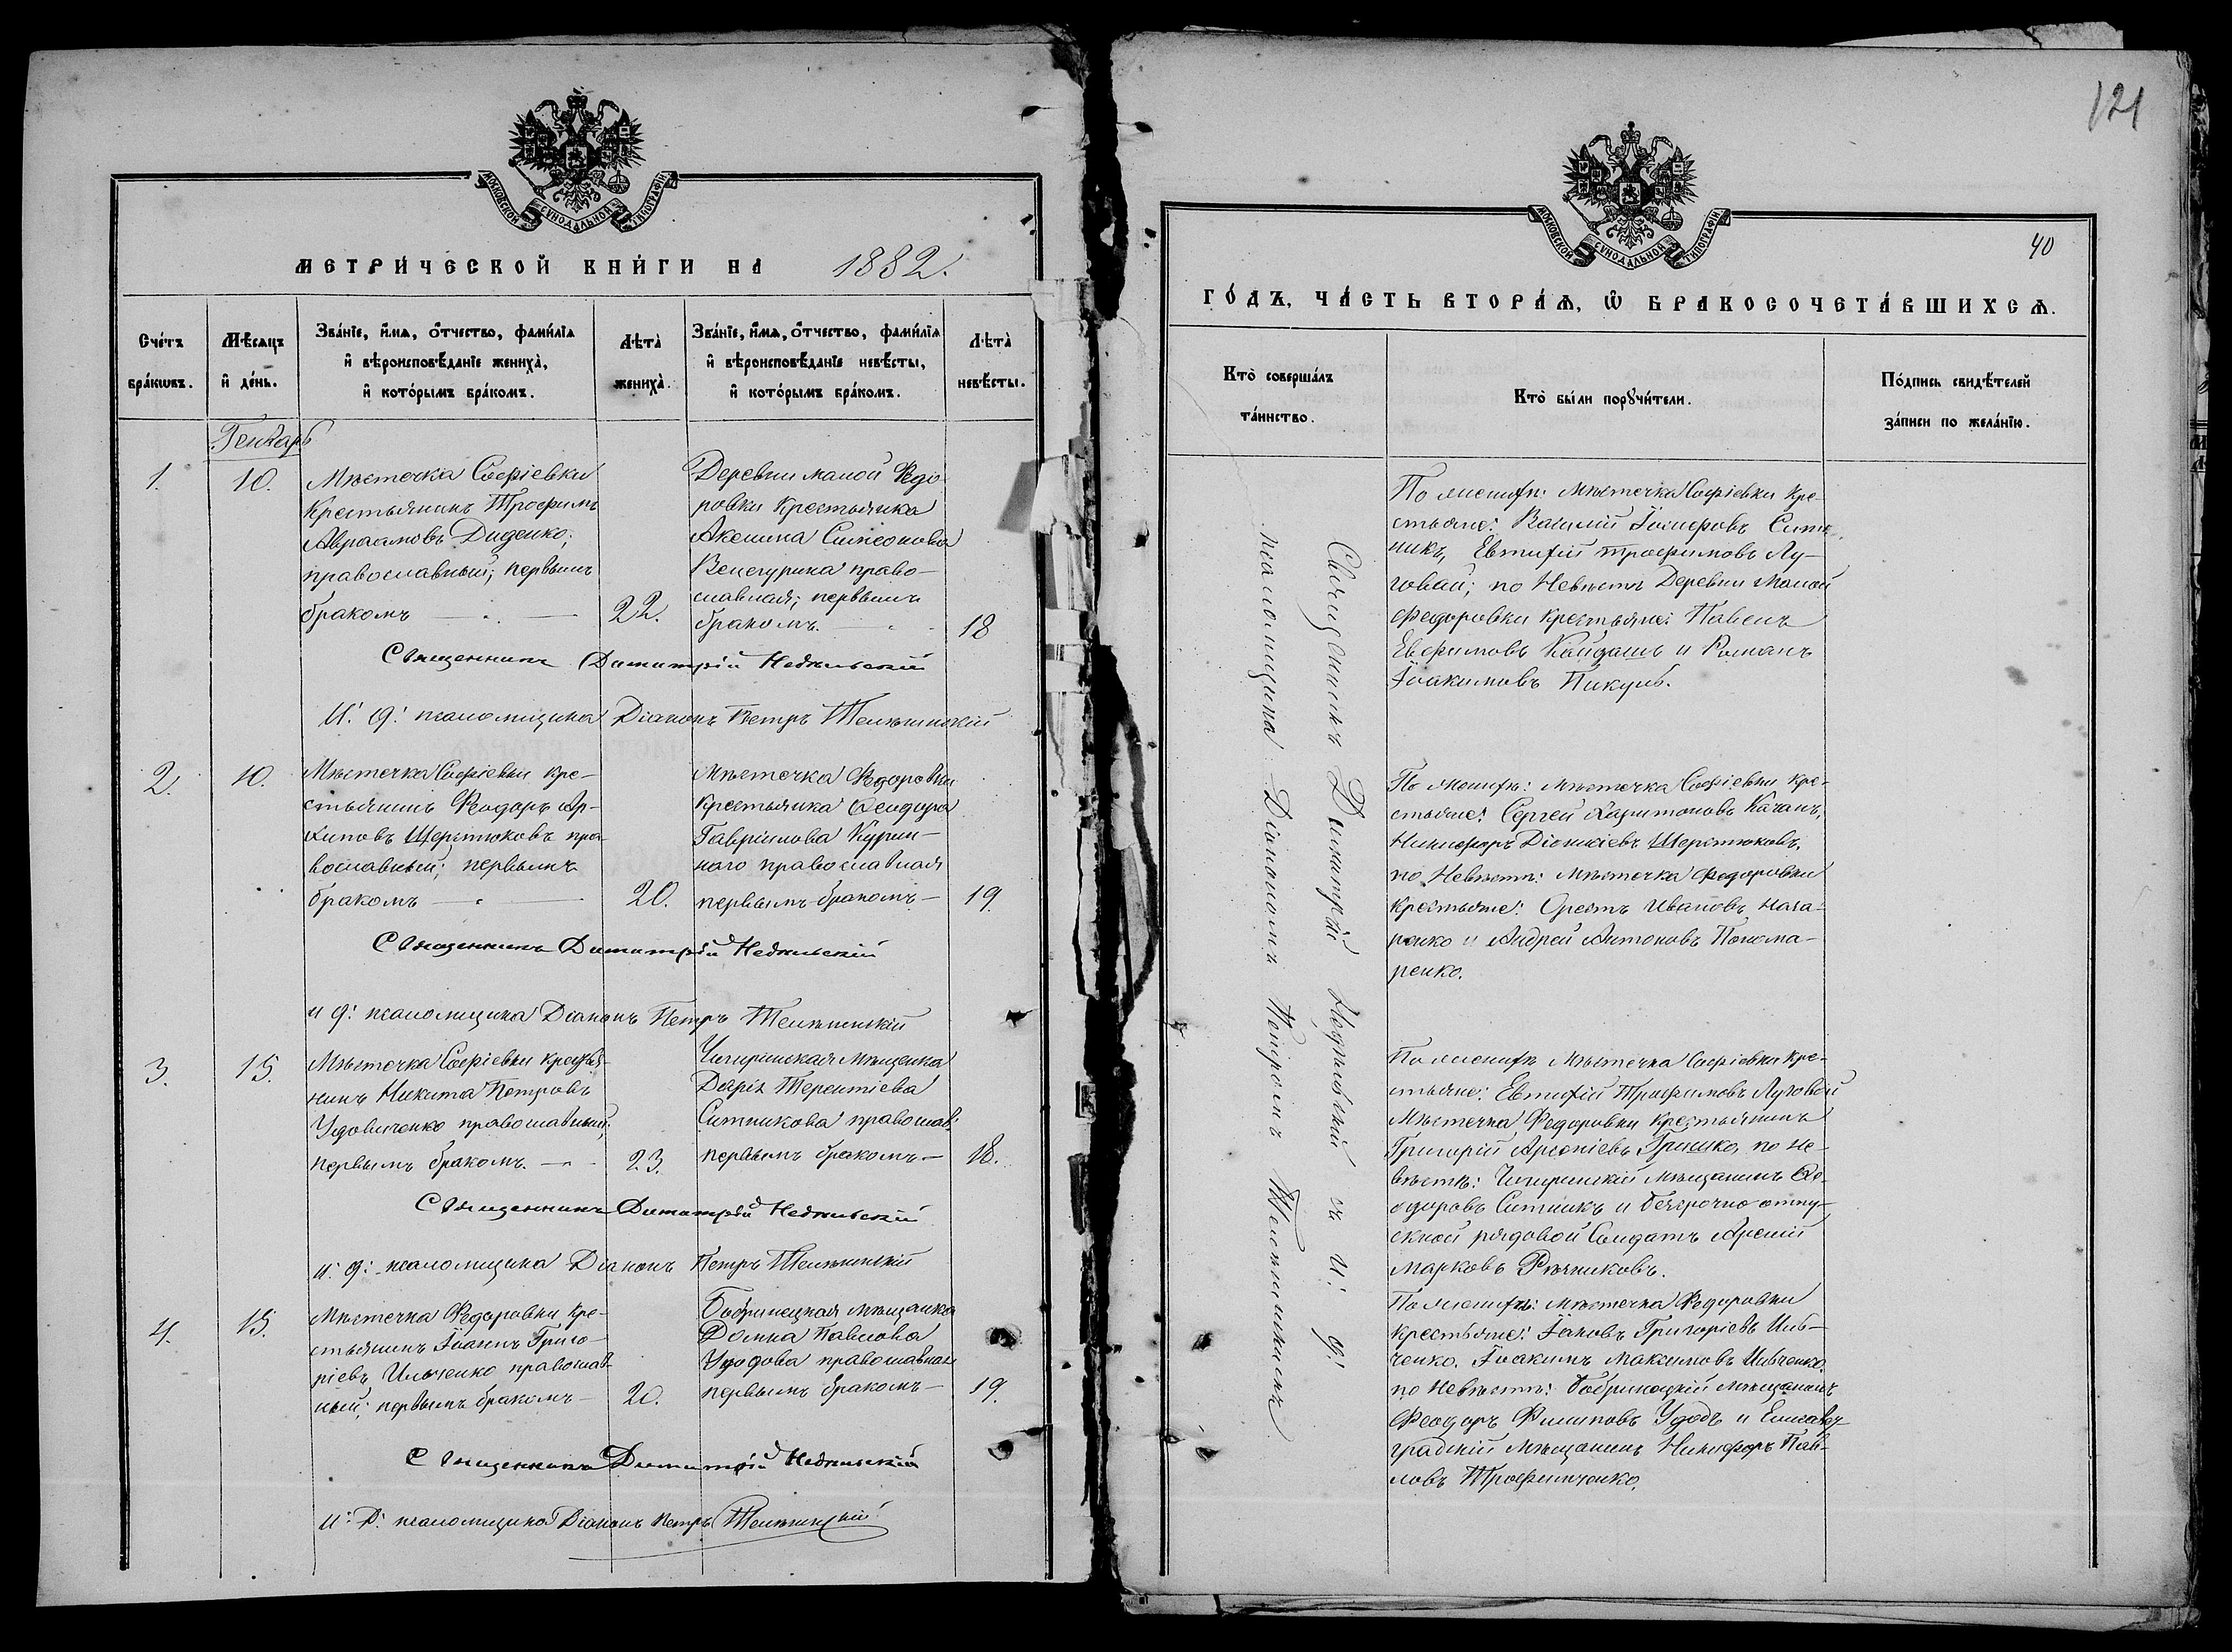 МОСКОВСКОЙ СѴНОДАЛЬНОЙ ТИПОГРАФІИ
МЕТРИ́ЧЕСКОЙ КНИ́ГИ НА 1882.
Сче́тъ бра́кωвъ.
Мѣ́сяцъ и де́нь.
Зва́нїе, и́мѧ, о́тчество, фами́лїѧ
и вѣроисповѣ́данїе жениха̀,
и кото́рымъ бра́комъ.
Лѣта̀ жениха̀.
Зва́нїе, и́мѧ, о́тчество, фами́лїѧ
и вѣроисповѣ́данїе невѣ́сты,
и кото́рымъ бра́комъ.
Лѣта̀ невѣ́сты.
Генварь
1.
10.
Мѣстечка Софіевки
Крестьянинъ Трофимъ
Авраамовъ Диденко;
православный; первымъ
бракомъ
22.
Деревни малой Ѳедо
ровки Крестьянка
Аксинна Симеонова
право-
славная; первымъ
бракомъ.
18
Священникъ Димитрій Недѣльскій
И: д: псаломщика Діаконъ Петръ
2.
10.
Мѣстечка Софіевки кре-
стьянинъ Ѳеодоръ Ар-
хиповъ Шерстюковъ пра-
вославный; первымъ
бракомъ
20.
Мѣстечка Ѳедоровки
Крестьянка Ѳеодора
Гавріилова Курин-
ного православная
первымъ бракомъ
19.
Священникъ Димитрій Недѣльскій
и д: псаломщика Діаконъ Петръ
3.
15.
Мѣстечка Софіевки крестья-
нинъ Никита Петровъ
Удовиченко православный;
первымъ бракомъ.
23.
Чигиринская мѣщанка
Дарія Терентіева
Ситникова православ:
первымъ бракомъ
18.
Священникъ Димитрій Недѣльскій
и: д: псаломщика Діаконъ Петръ
4.
15.
Мѣстечка Ѳедоровки кре-
стьянинъ Іоаннъ Григо-
ріевъ Ильченко православ-
ный; первымъ бракомъ
20.
Бобринецкая мѣщанка
Домна Павлова
Удодова православная
первымъ бракомъ
19.
Священникъ Димитрій Недѣльскій
И: Д: псаломщика Діаконъ Петръ
121
МОСКОВСКОЙ СѴНОДАЛЬНОЙ ТИПОГРАФІИ
40
ГО́ДЪ, ЧА́СТЬ ВТОРА́Ѧ, Ѡ БРАКОСОЧЕТА́ВШИХСѦ.
Кто̀ соверша́лъ
та́инство.
Кто̀ бы́ли порꙋчи́тели.
По́дпись свидѣ́телей
за́писи по жела́нїю.
Священникъ Димитрій Недѣльскій съ И: д:
псаломщика Діакономъ Петромъ
По женихѣ: мѣстечка Софіевки кре-
стьяне: Василій Іосифовъ Сит-
никъ, Евтифій Трофимовъ Лу-
говой; по Невѣстѣ Деревни Малой
Федоровки крестьяне: Павелъ
Евфимовъ Кайдашъ и Романъ
Іоакимовъ Пикуль.
По женихѣ: мѣстечка Софіевки кре-
стьяне: Сергей Харитоновъ Качанъ,
Никифоръ Діонисіевъ Шерстюковъ,
по Невѣстѣ: мѣстечка Федоровки
крестьяне: Орестъ Ивановъ Наза-
ренко и Андрей Антоновъ Понома-
ренко.
По женихѣ мѣстечка Софіевки кре-
стьяне: Евтифій Трофимовъ Луговой
Мѣстечка Федоровки крестьянинъ
Григорій Арсеніевъ Гришко, по Не-
вѣстѣ: Чигиринскій мѣщанинъ Ѳе-
одоровъ Ситникъ и безсрочно отпу-
скной рядовой Солдатъ Арсеній
Марковъ Рѣзниковъ.
По женихѣ: мѣстечка Ѳедоровки
крестьяне: Іаковъ Григоріевъ Иль-
ченко, Іоакимъ Максимовъ Ильченко,
по Невѣстѣ: Бобринецкій мѣщанинъ
Феодоръ Филиповъ Удодъ и Елисавет-
градскій мѣщанинъ Никифоръ Пав-
ловъ Трофимченко.